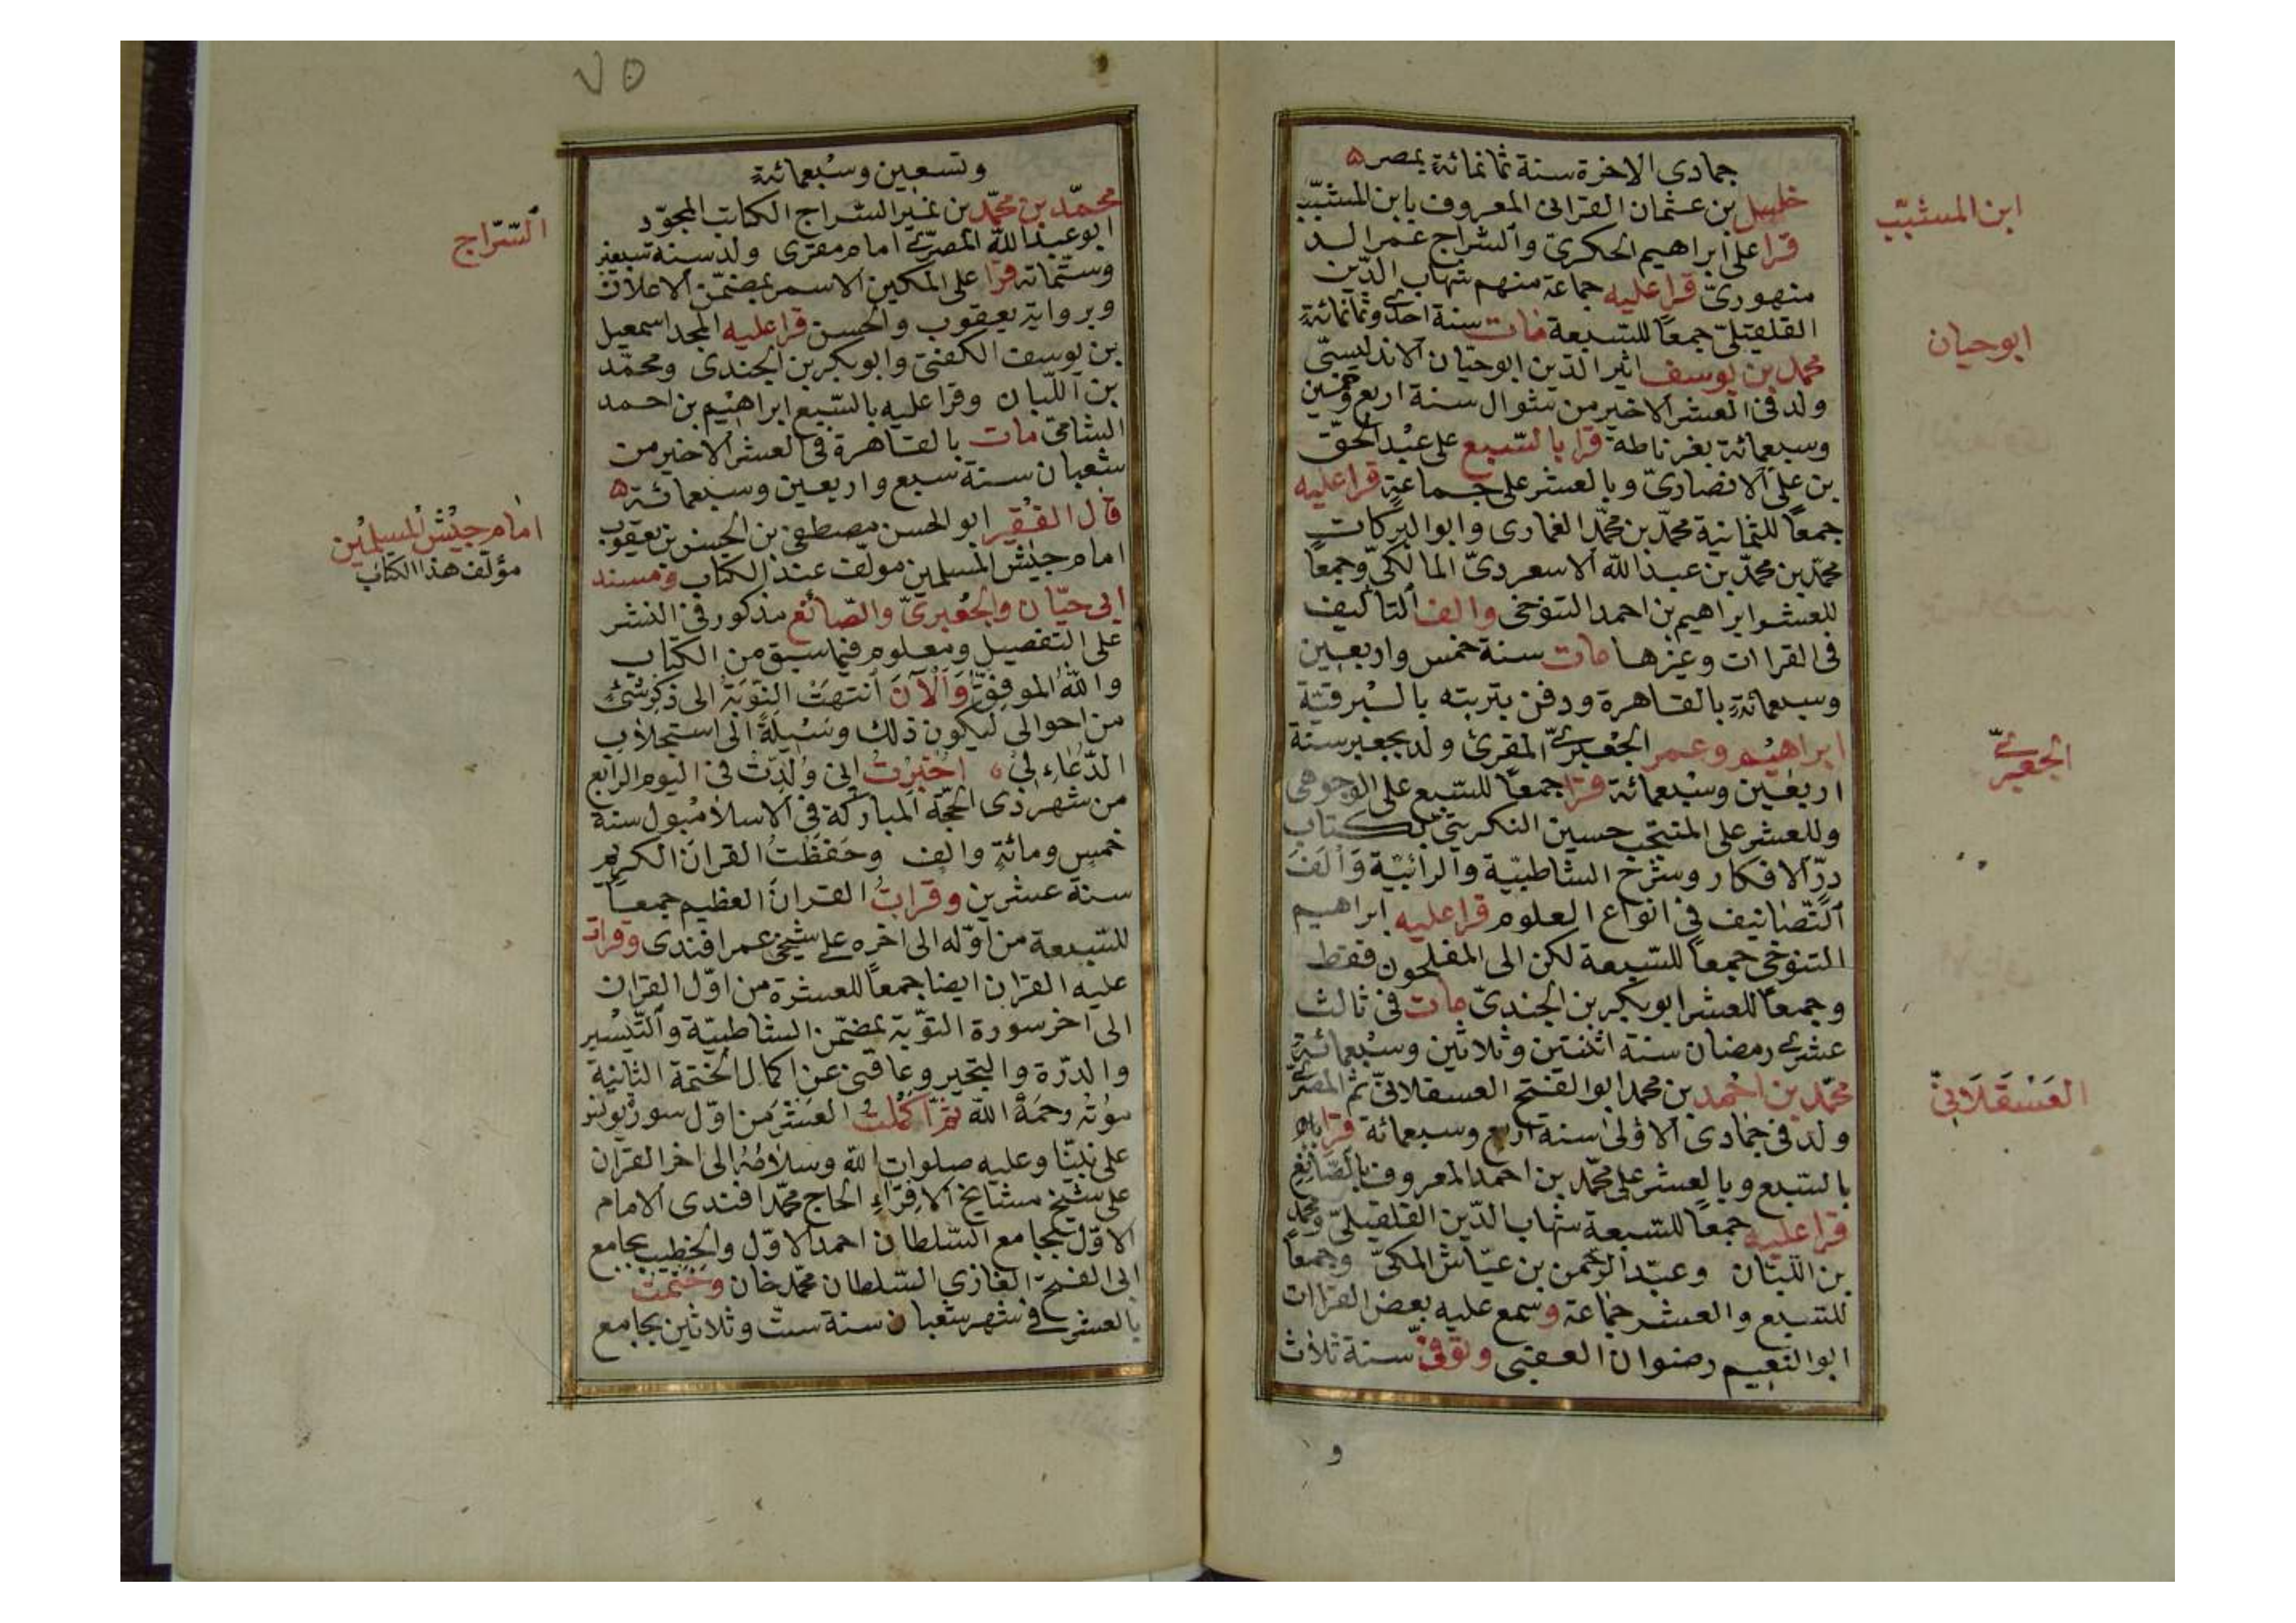 جمادى الاخرة سنة ثمانمائة بمصر ه
خليل بن عثمان القرافى المعروف بابن المشبّب
ابن المشبّب
قرا على ابراهيم الحكرى والسّراج عمر الد
منهورىّ قرا عليه جماعة منهم شهاب الدّين
القلقيلىّ جمعًا للسّبعة مات سنة احدى وثمانمائةٍ
محمد بن يوسف اثير الدّين ابو حيّان الاندليسىّ
ابو حيان
ولد فى العشر الاخير من شوال سنة اربع وخمسين
وسبعمائة بغرناطة قرا بالسّبع على عبد الحقّ
بن على الانصارىّ وبالعشر على جماعةٍ قرا عليه
جمعاً للثمانية محمّد بن محمّد الغمارى وابو البركات
محمّد بن محمّد بن عبد الله الاسعردىّ المالكىّ وجمعًا
للعشر ابراهيم بن احمد التنوخى والف التاليف
فى القراات وغيرها مات سنة خمس واربعين
وسبعمائةٍ بالقاهرة ودفن بتربته بالبرقيّة
ابراهيم وعمر الجعبرىّ المقرئ ولد بجعبر سنة
الجعبرىّ
اربعين وسبعمائة قرا جمعًا للسّبع على الوجوهى
وللعشر على المنتجب حسين التكريتىّ بكتاب
درّ الافكار وشرح الشاطبيّة والرائيّة وَاَلَفَ
التّصانيف فى انواع العلوم قرا عليه ابراهيم
التنوخى جمعاً للسّبعة لكن الى المفلحون فقط
وجمعاً للعشر ابو بكر بن الجندىّ مات فى ثالث
عشرى رمضان سنة اثنتين وثلاثين وسبعمائةٍ
محمّد بن احمد بن محمد ابو الفتح العسقلانىّ ثم المصرىّ
العَسْقَلَانِىّ
ولد فى جمادى الاولى سنة اربع وسبعمائة قرا
بالسّبع وبالعشر على محمّد بن احمد المعروف بالصّائغ
قرا عليه جمعًا للسّبعة شهاب الدّين القلقيلىّ ومحمد
بن اللّبّان وعبد الرّحمن بن عيّاش المكىّ وجمعاً
للسّبع والعشر جماعة وسمع عليه بعض القراات
ابو النعيم رضوان العقبى وتوفّى سنة ثلاث
و
٧٥
وتسعين وسبعمائةٍ
محمّد بن محمّد بن نمير السّراج الكاتب المجوّد
السّرّاج
ابو عبد الله المصرىّ امام مقرى ولد سنة سبعين
وستّمائة قرا على المكين الاسمر بمضمّن الاعلان
وبرواية يعقوب والحسن قرا عليه المجد اسمعيل
بن يوسف الكفتى وابو بكر بن الجندى ومحمّد
بن اللّبان وقرا عليه بالسّبع ابراهيم بن احمد
الشامى مات بالقاهرة فى العشر الاخير من
شعبان سنة سبع واربعين وسبعمائة ه
قال الفقير ابو الحسن مصطفى بن الحسن بن يعقوب
امام جيش المسلمين
امام جيش المسلمين مولّف عند الكتاب ومسند
مؤلّف هذا الكتاب
ابى حيّان والجعبرىّ والصّائغ مذكور فى النشر
على التفصيل ومعلوم فيما سبق من الكتاب
والله الموفِقُ وَالْآنَ انتهَتْ النّوبَة الى ذكر شىءٍ
من احوالى ليكون ذلك وسيلَةً الى استجلاب
الدّعاءِ لى ٥ اُخبِرْتُ انى وُلِدْت فى اليوم الرابع
من شهر ذى الحجّة المباركة فى الاسلامبول سنة
خمس ومائةٍ والف وحَفَظْتُ القرانَ الكريم
سنة عشرين وقراتُ القرانَ العظيم جمعاً
للسّبعة من اوّله الى اخره على شيخى عمر افندى وقرات
عليه القران ايضا جمعاً للعشرة من اوّل القران
الى اخر سورة التوبة بمضمّن الشاطبيّة والتّيسير
والدرّة والتحبير وعاقنى عن اكمال الختمة الثانية
موته رحمَهُ الله ثمّ اكملتُ العشرَ من اوّل سورة يونس
على نبيّنا وعليه صلوات الله وسلامُهُ الى اخر القرآن
على شيخ مشايخ الاقراءِ الحاج محمّد افندى الامام
الاوّل بجامع السّلطان احمد الاوّل والخطيب بجامع
ابى الفتح الغازى السّلطان محمّد خان وختمت
بالعشر فى شهر شعبان سنة ستّ وثلاثين بجامع